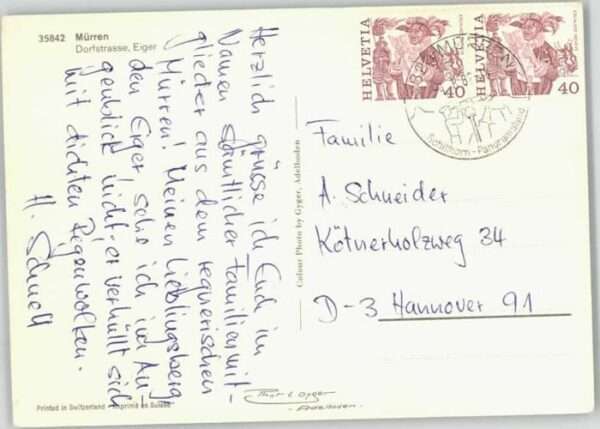 35842 Mürren
Dorfstrasse, Eiger
Herzlich grüsse ich Euch im
Namen sämtlicher Familienmit-
glieder aus dem regnerischen
Mürren! Meinen Lieblingsberg
den Eiger sehe ich im Au-
genblick nicht, er verhüllt sich
mit dichten Regenwolken.
H. Schnell
Printed in Switzerland - Imprimé en Suisse
Colour Photo by Gyger, Adelboden
Phot E. Gyger
- Adelboden -
HELVETIA
40
HELVETIA
40
MÜRREN
Schilthorn - Panorama
Familie
A. Schneider
Kötnerholzweg 34
D-3 Hannover 91